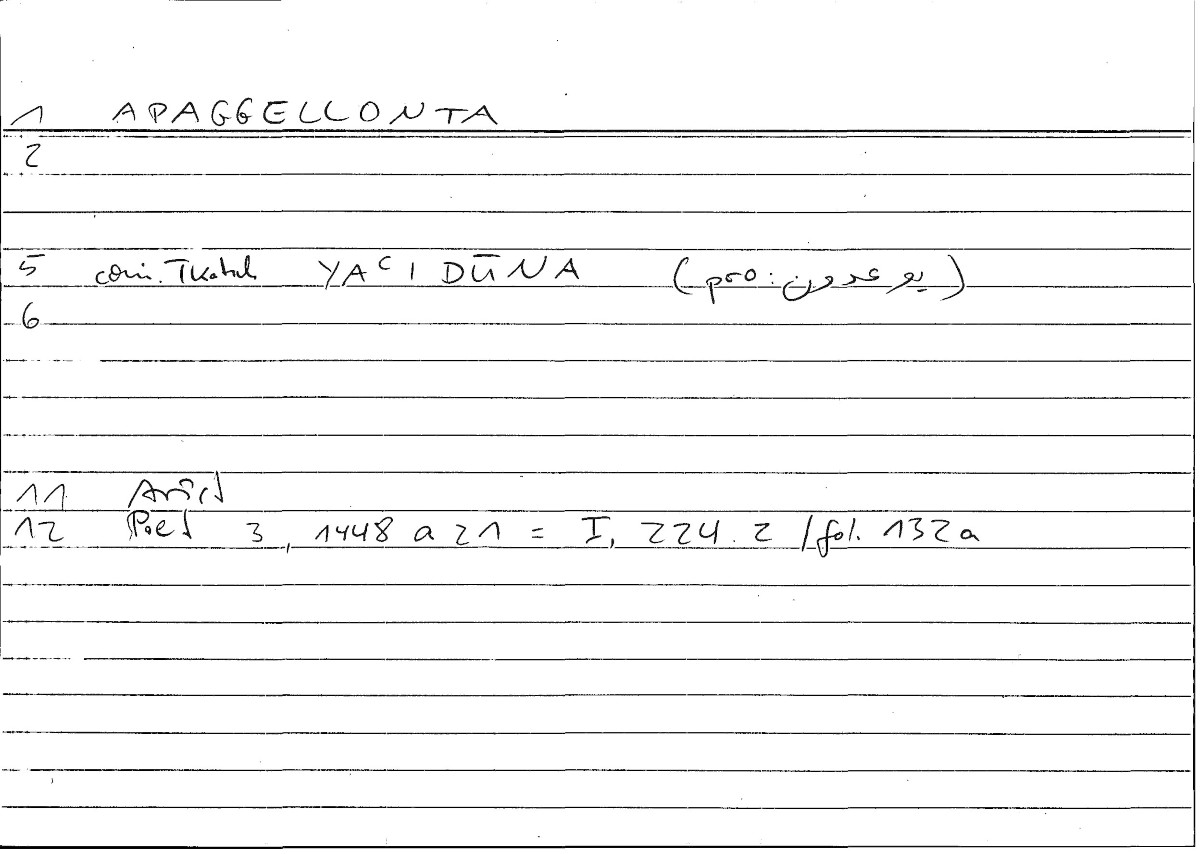 1 APAGGELLONTA
2
5 coni. Tkatsch YAʿIDŪNA (pro: يوعدون)
6
11 Arist
12 Poet 3, 1448 a 21 = I, 224.2 / fol. 132a